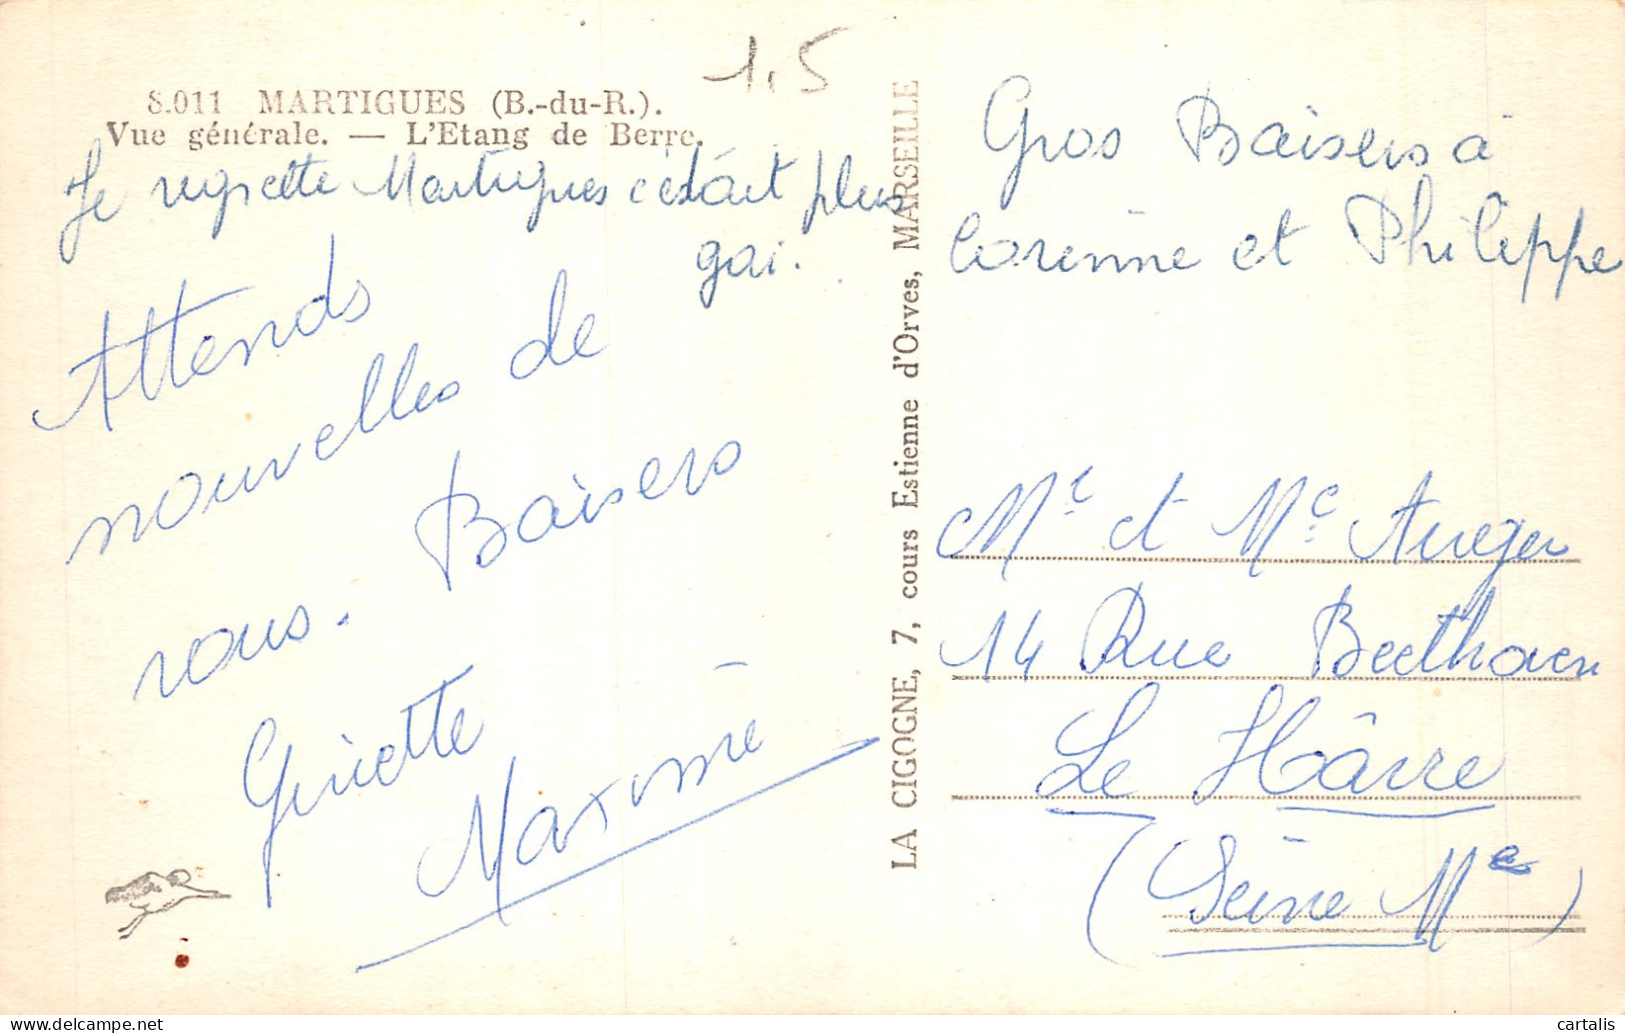 1,5
8.011 MARTIGUES (B.-du-R.).
Vue générale. — L'Etang de Berre.
Je regrette Martigues c'était plus
gai.
Attends
nouvelles de
vous. Baisers
Ginette
Maxime
LA CIGOGNE, 7, cours Estienne d'Orves, MARSEILLE
Gros Baisers à
Corinne et Philippe
Mr et Me Auger
14 Rue Beethoven
Le Hâvre
(Seine Me)
cartalis